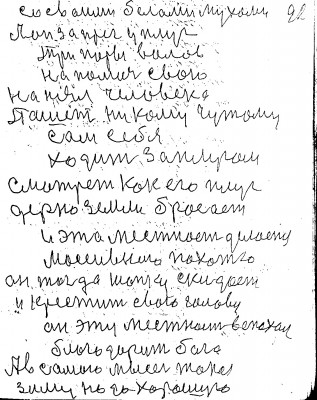 со своими белыми мухами 92
Поп запрег у плуг
Три пары волов
На помач свою
нанял человека
Пашет ни кому чужому
Сам себя
ходит за плугом
Смотрет как его плуг
дерно земли бросает
и эта местност
на похот
он тогда шапку скидает
и крестит свою голову
он эту местност вспахал
благодарит бога
Ав самого мысел така
зиму на до хорошую